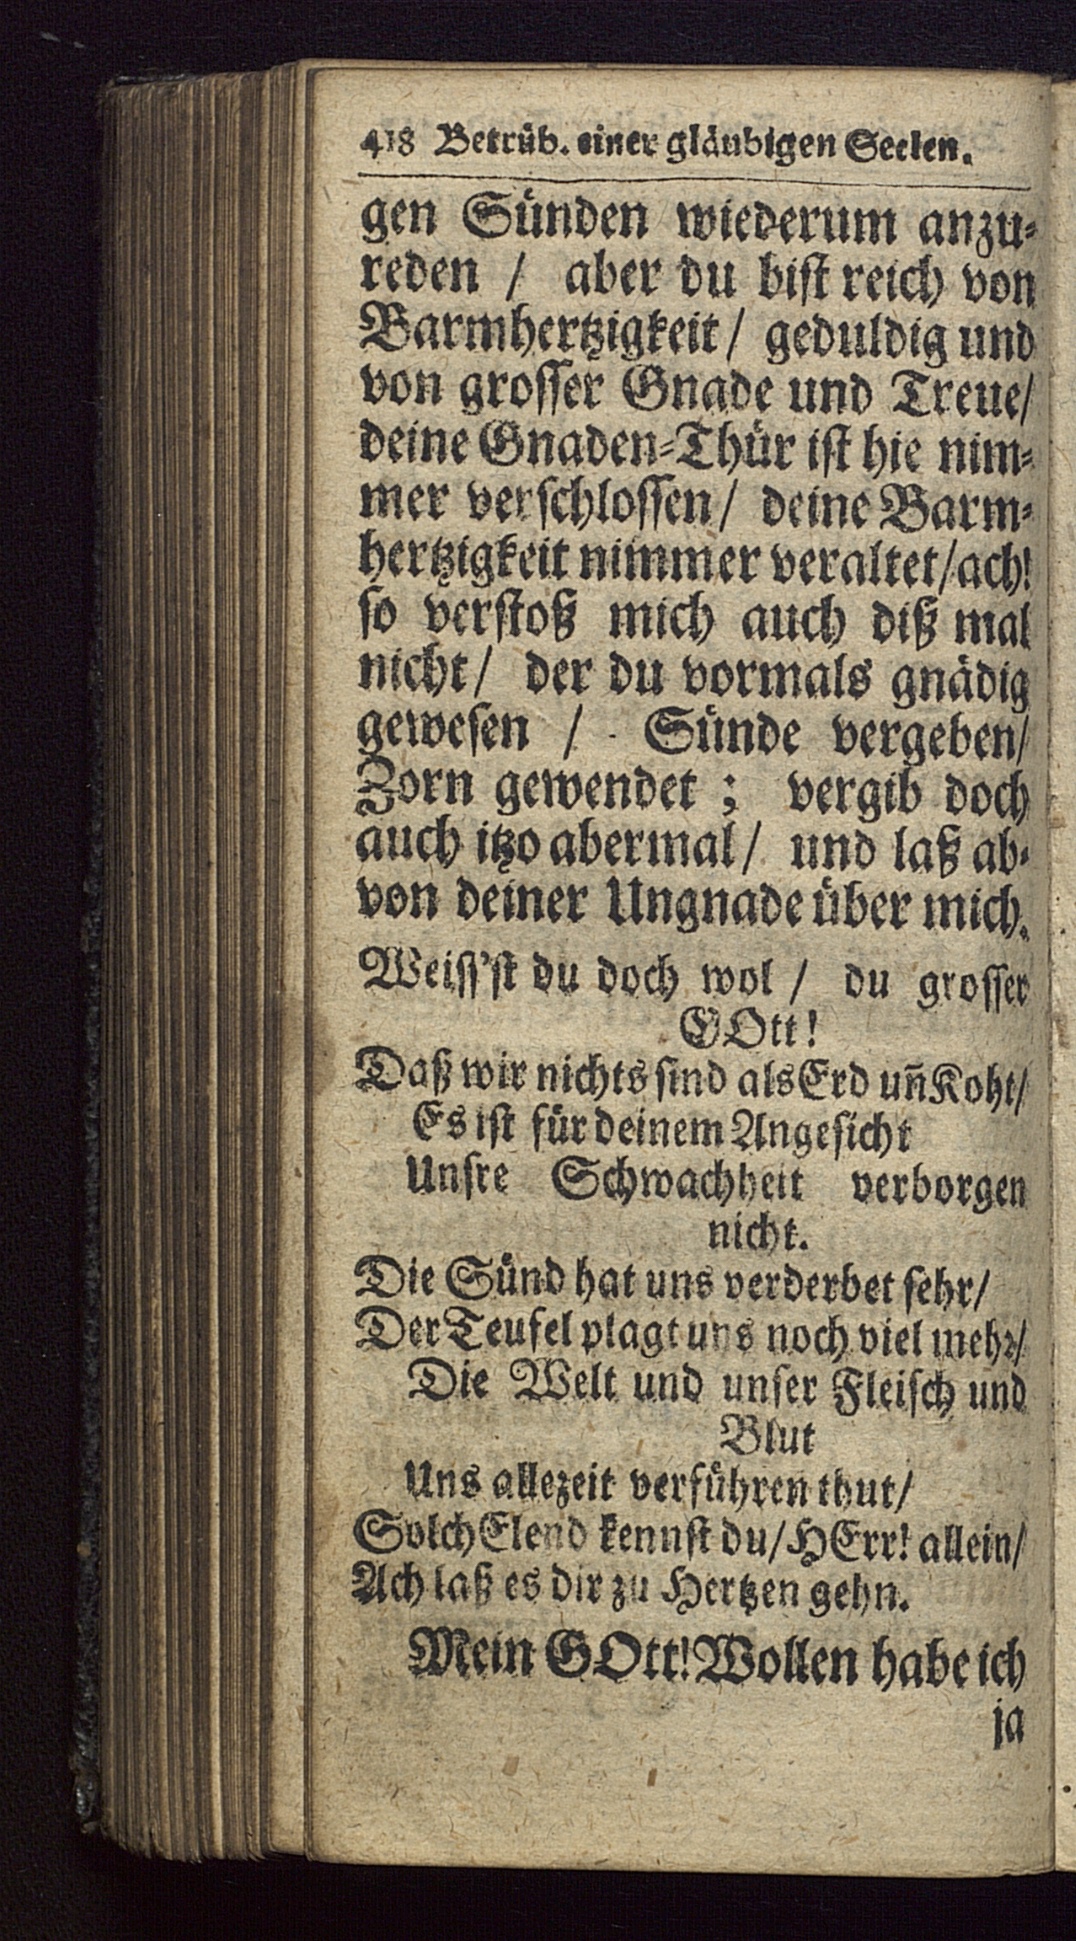 418 Betrüb. einer gläubigen Seelen.
gen Sünden wiederum anzu⸗
reden / aber du bist reich von
Barmhertzigkeit / geduldig und
von grosser Gnade und Treue /
deine Gnaden⸗Thür ist hie nim⸗
mer verschlossen / deine Barm⸗
hertzigkeit nimmer veraltet / ach!
so verstoß mich auch diß mal
nicht / der du vormals gnädig
gewesen / Sünde vergeben /
Zorn gewendet ; vergib doch
auch itzo abermal / und laß ab⸗
von deiner Ungnade über mich.
Weiss'st du doch wol / du grosser
GOtt!
Daß wir nichts sind als Erd uñ Koht /
Es ist für deinem Angesicht
Unsre Schwachheit verborgen
nicht.
Die Sünd hat uns verderbet sehr /
Der Teufel plagt uns noch viel mehr /
Die Welt und unser Fleisch und
Blut
Uns allezeit verführen thut /
Solch Elend kennst du / HErr! allein /
Ach laß es dir zu Hertzen gehn.
Mein GOtt! Wollen habe ich
ja